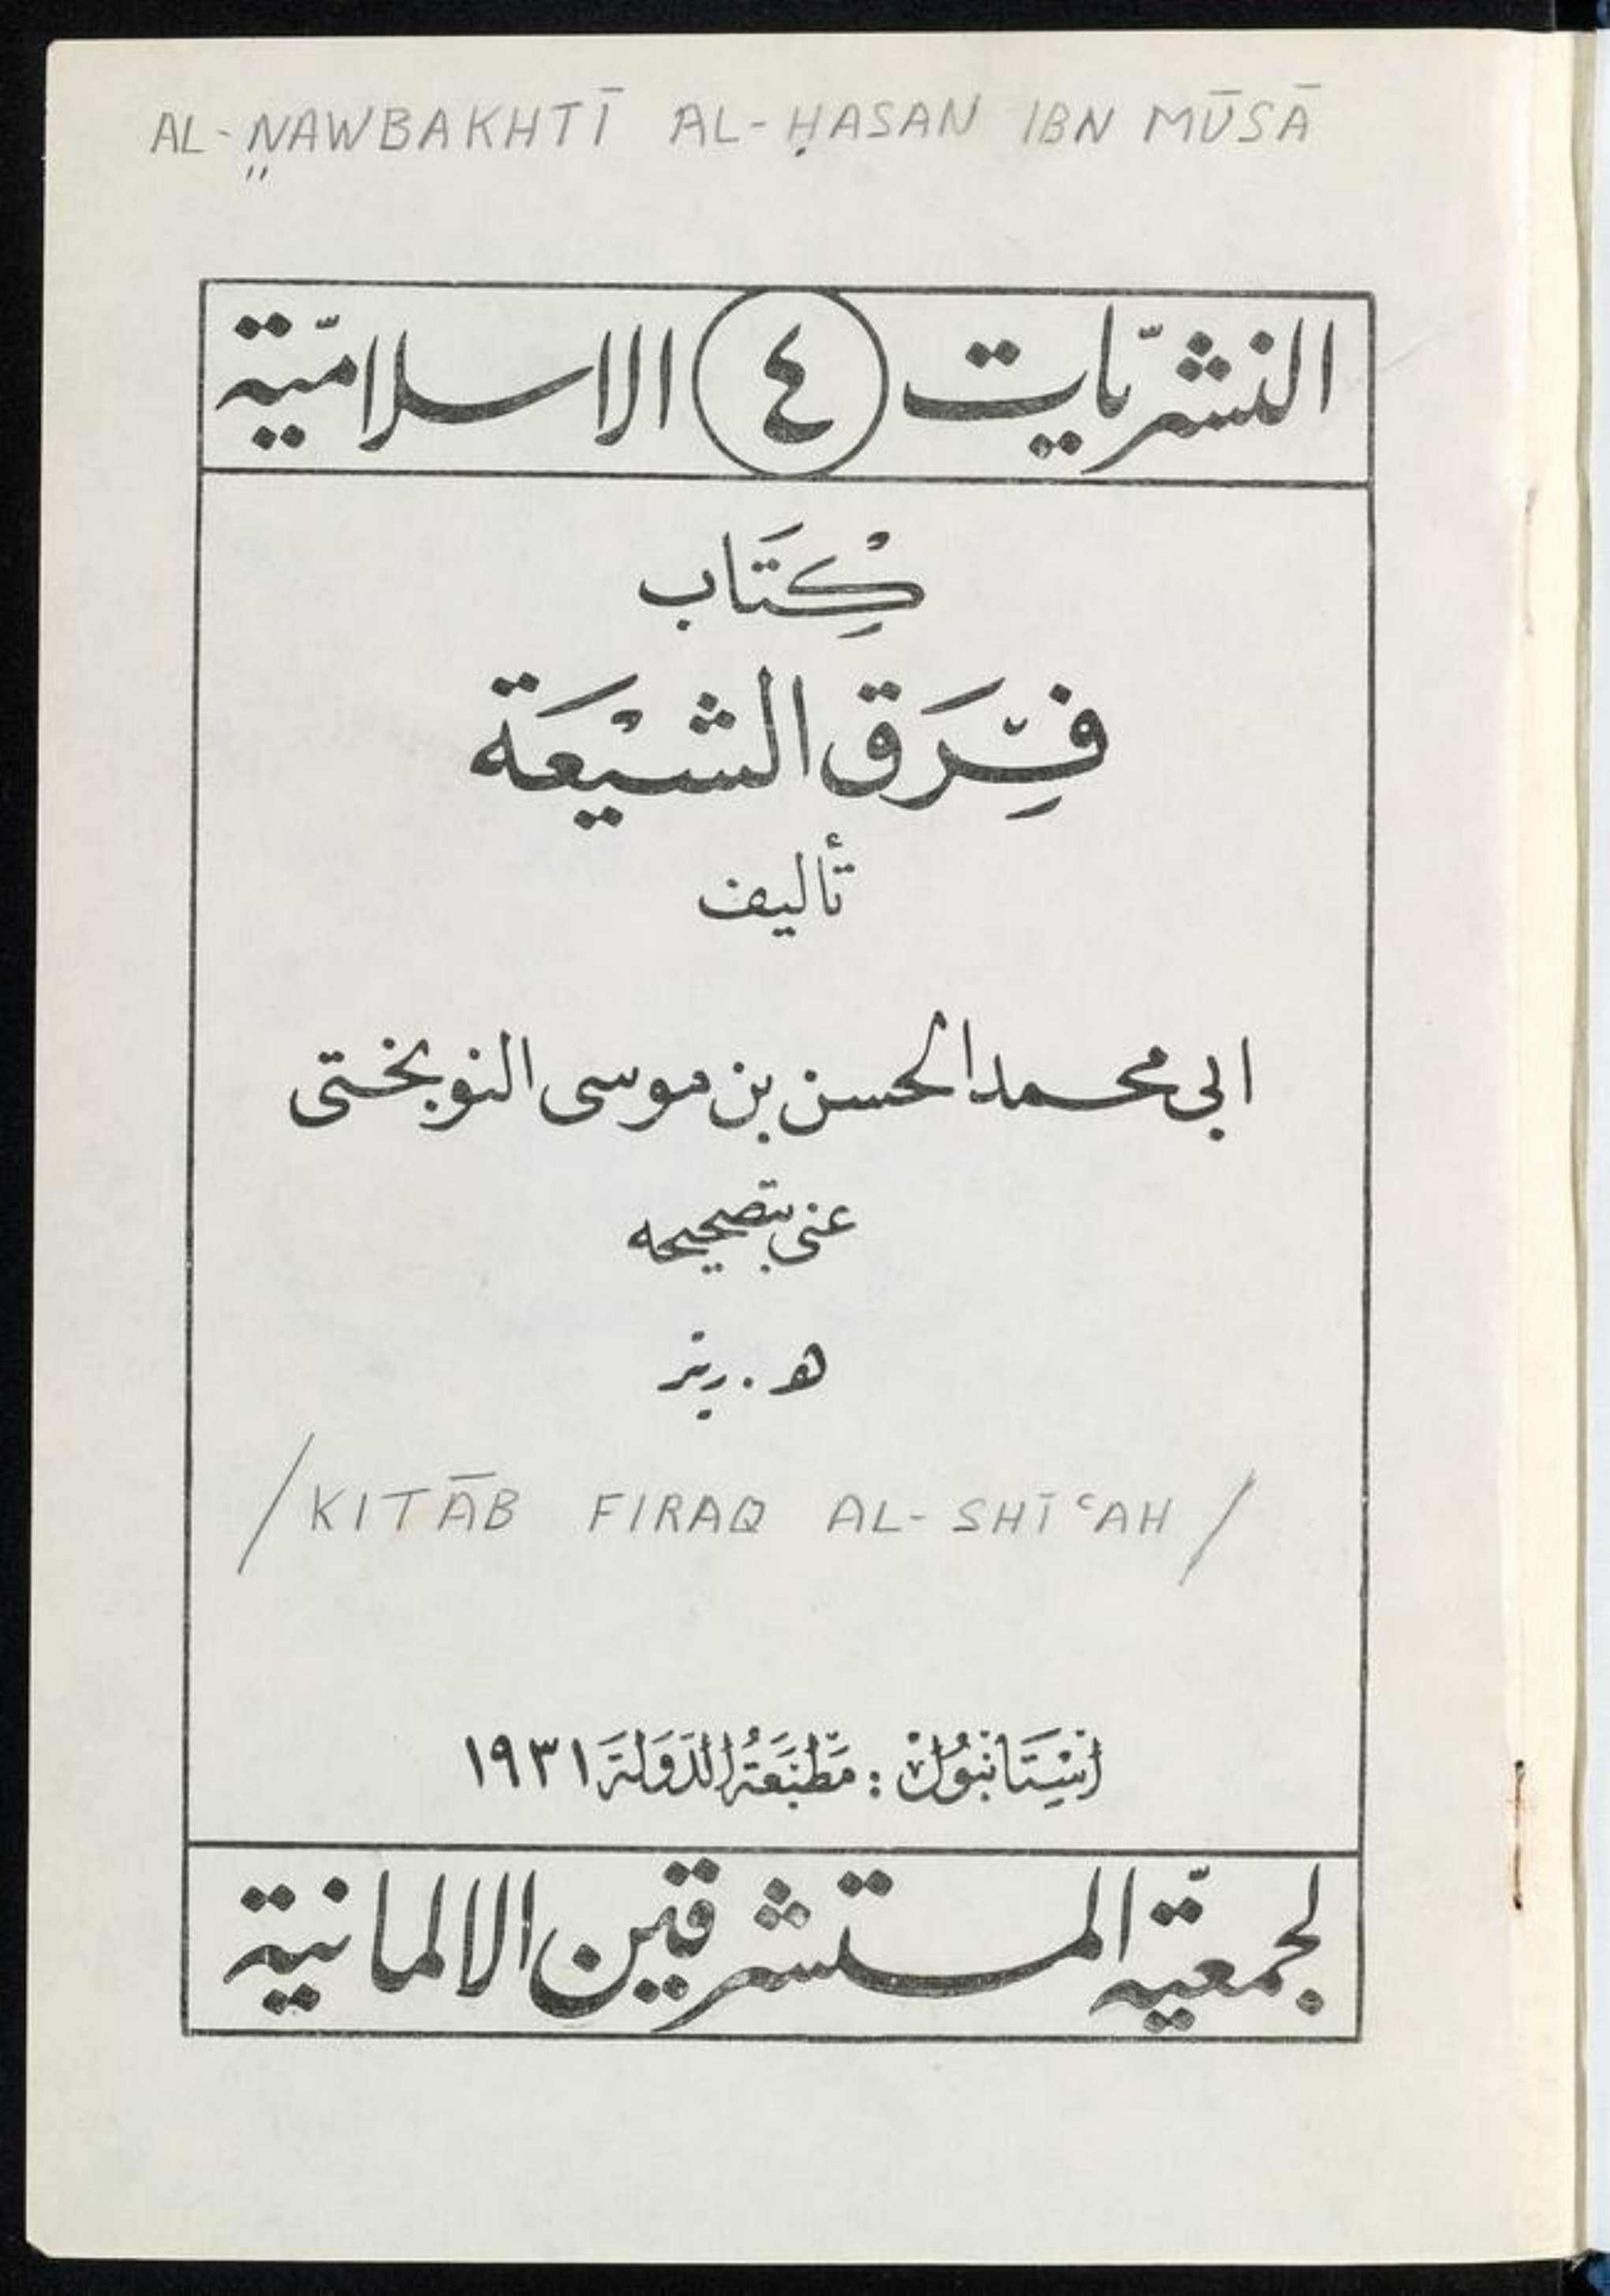 AL-NAWBAKHTĪ AL-ḤASAN IBN MŪSĀ
النشريّات ٤ الاسلاميّة
كِتَابْ
فِرَق الشيْعَة
تأليف
ابى محمد الحسن بن موسى النوبختى
عنى بتصحيحه
هـ . ريتر
/KITĀB FIRAQ AL-SHĪʿAH/
اِسْتَانْبُولْ : مَطْبَعَةُ الدَوْلَةَ ١٩٣١
لجمعيّة المستشرقين الالمانية